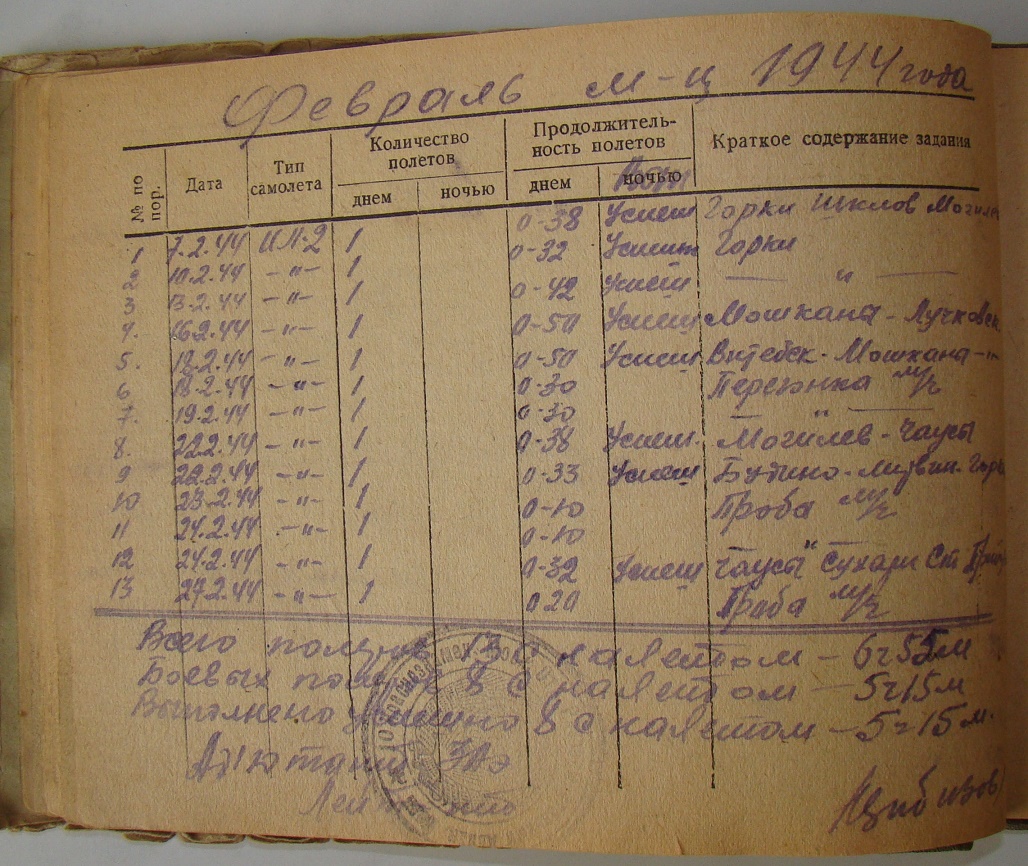 Февраль м-ц 1944 года
№ по пор. Дата Тип самолета Количество полетов днем ночью Продолжительность полетов днем ночью Краткое содержание задания
1 7.2.44 ИЛ-2 1 0-38 Успеш Горки Шклов Могилев
2 10.2.44 -"- 1 0-32 Успеш Горки
3 13.2.44 -"- 1 0-42 Успеш — " —
4. 16.2.44 -"- 1 0-50 Успеш Мошкана -
5. 18.2.44 -"- 1 0-50 Успеш Витебск - Мошкана -"-
6 18.2.44 -"- 1 0-30
7. 19.2.44 -"- 1 0-30 "
8. 22.2.44 -"- 1 0-38 Успеш. Могилев - Чаусы
9 22.2.44 -"- 1 0-33 Успеш
10 23.2.44 -"- 1 0-10 Проба м/ч
11 24.2.44 -"- 1 0-10 "
12 24.2.44 -"- 1 0-32 Успеш Чаусы Сухари Ст
13 27.2.44 -"- 1 0 20 Проба м/ч
Всего полетов 13 с налетом - 6ч 55м
Боевых полетов 8 с налетом - 5ч15м
Выполнено успешно 8 с налетом - 5ч15м.
Адъютант 3АЭ
Лейтенант